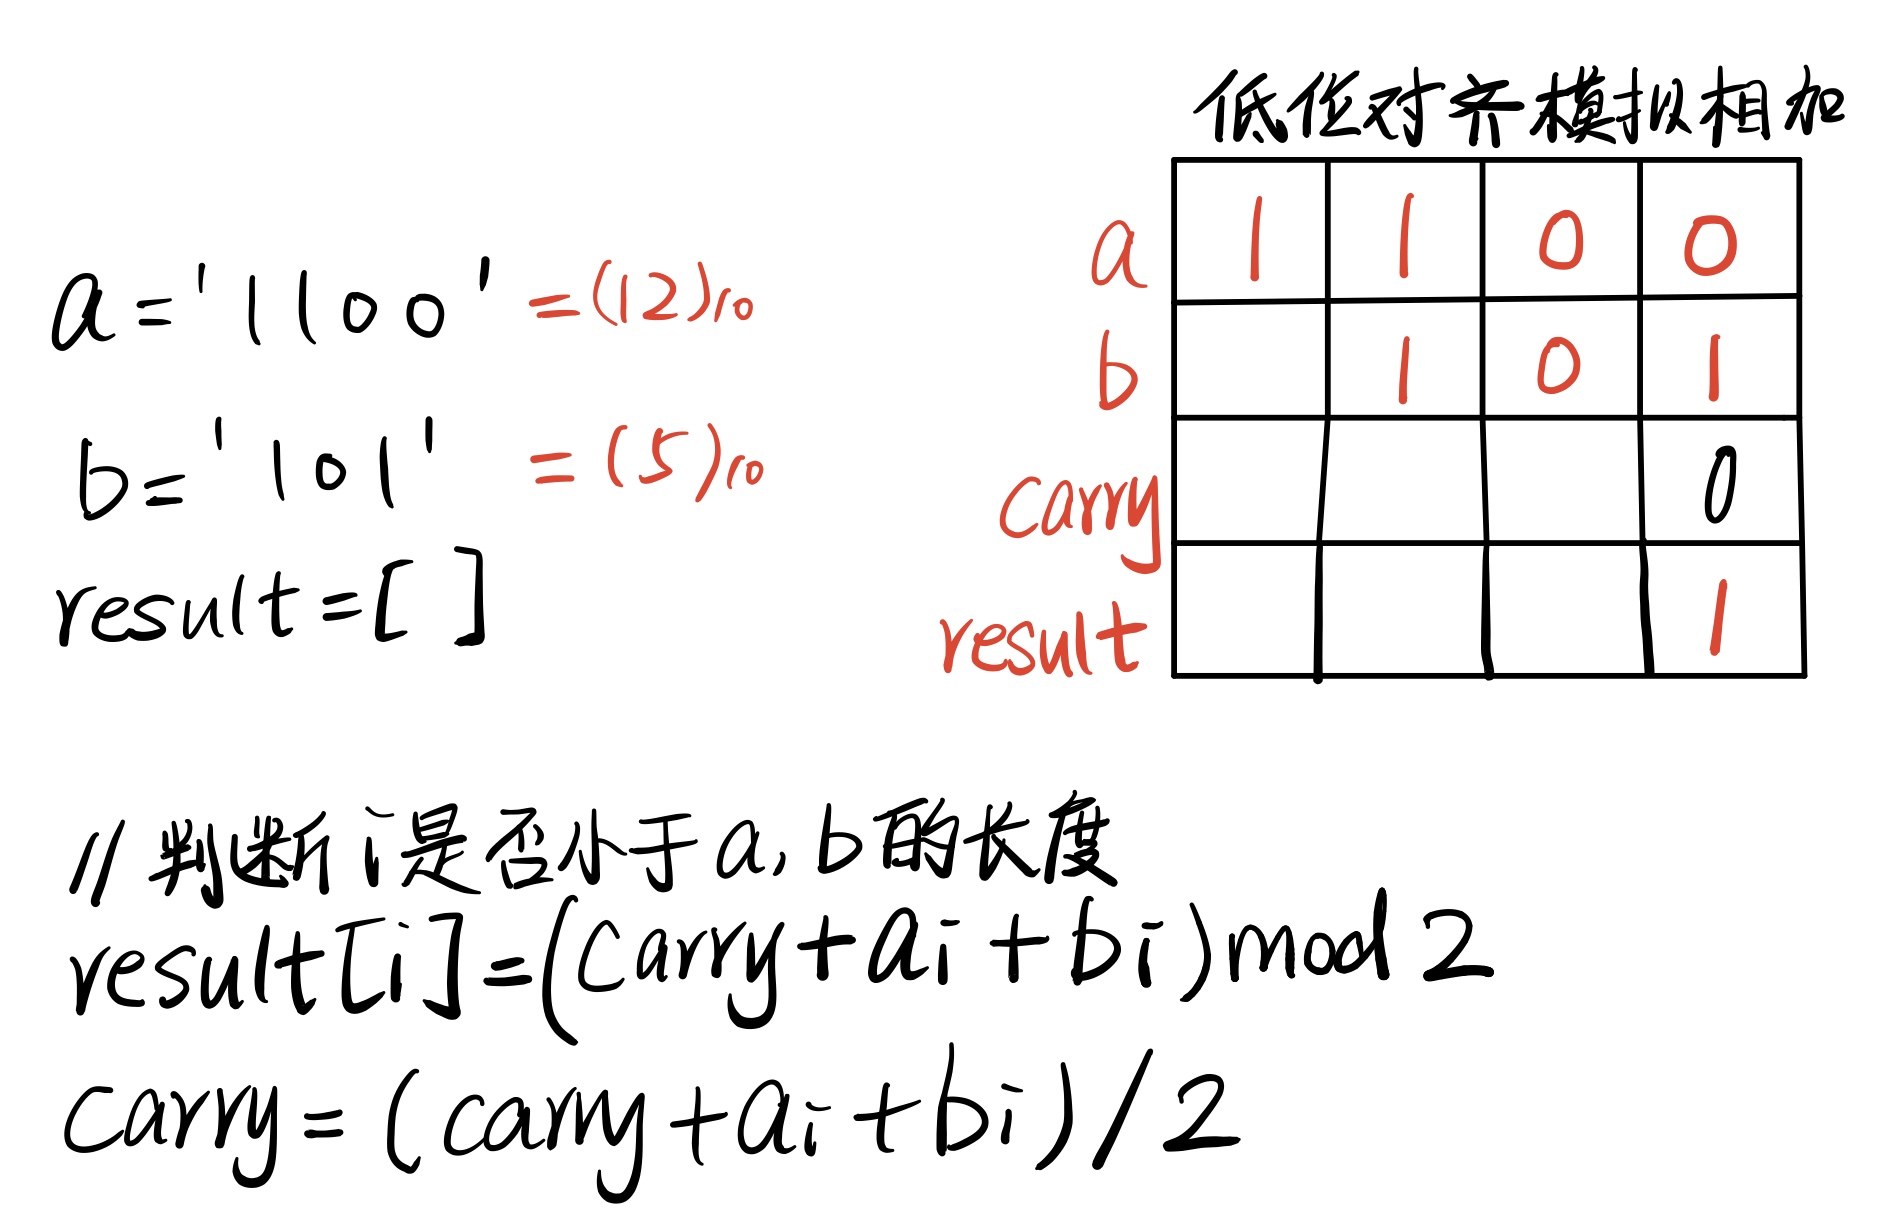 低位对齐模拟相加
a 1 1 0 0
b 1 0 1
carry 0
result 1
a = '1100' = (12)₁₀
b = '101' = (5)₁₀
result = [ ]
// 判断 i 是否小于 a, b 的长度
result[i] = (carry + ai + bi) mod 2
carry = (carry + ai + bi) / 2